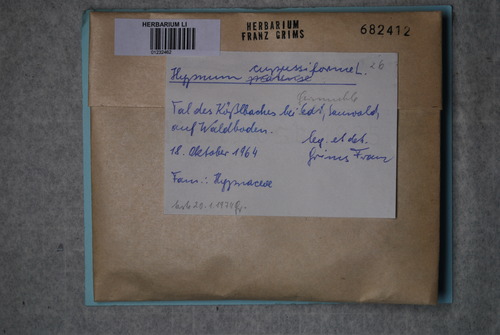 HERBARIUM LI
01232462
HERBARIUM
FRANZ GRIMS
682412
cupressiforme L.
Hypnum pratense
Tal des Kößlbaches bei Edt, Sauwald,
auf Waldboden.
18. Oktober 1964
leg. et det.
Grims Franz
Fam.: Hypnaceae